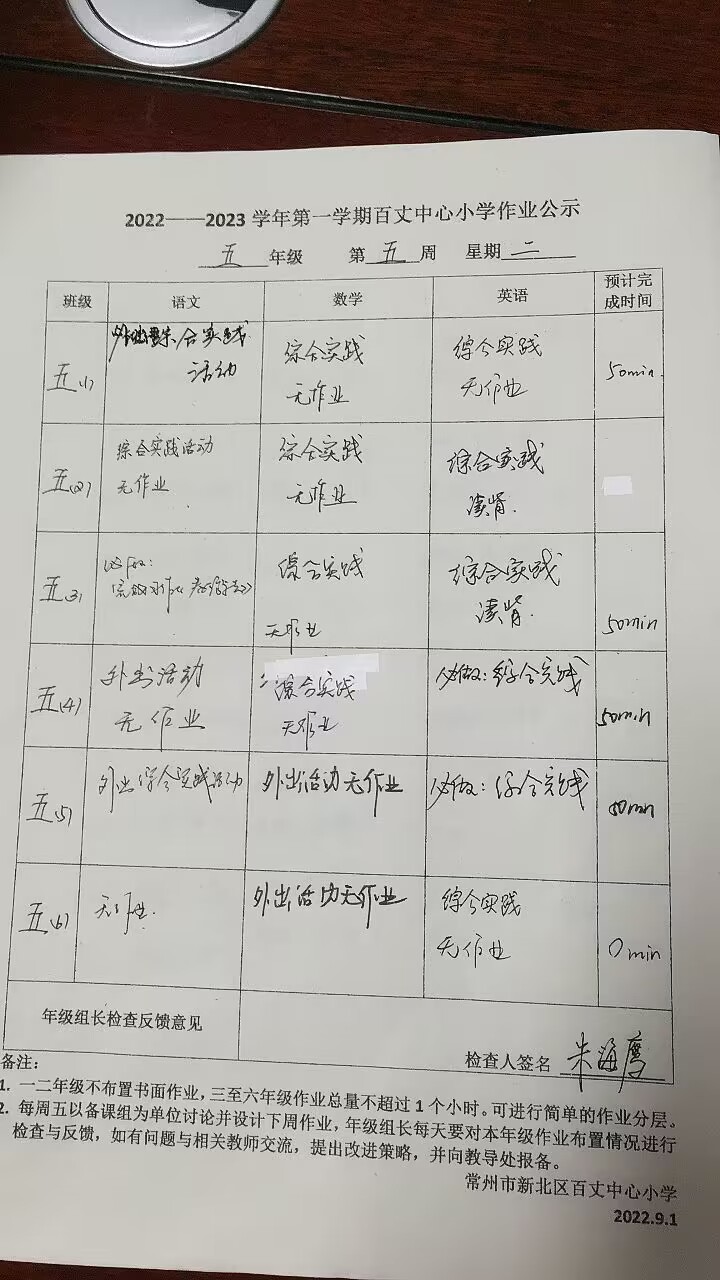 2022——2023 学年第一学期百丈中心小学作业公示
五 年级 第 五 周 星期 二
班级 语文 数学 英语 预计完成时间
五(1) 合实践活动 综合实践 无作业 综合实践 无作业 50min.
五(2) 综合实践活动 无作业 综合实践 无作业 综合实践
五(3) 综合实践 无作业 综合实践 50min
五(4) 外出活动 无作业 综合实践 无作业 必做：综合实践 50min
五(5) 外出综合实践活动 外出活动无作业 必做：综合实践 min
五(6) 无作业. 外出活动无作业 综合实践 无作业 0min
年级组长检查反馈意见
检查人签名 朱海鹰
备注：
1. 一二年级不布置书面作业，三至六年级作业总量不超过 1 个小时。可进行简单的作业分层。
2. 每周五以备课组为单位讨论并设计下周作业，年级组长每天要对本年级作业布置情况进行
检查与反馈，如有问题与相关教师交流，提出改进策略，并向教导处报备。
常州市新北区百丈中心小学
2022.9.1